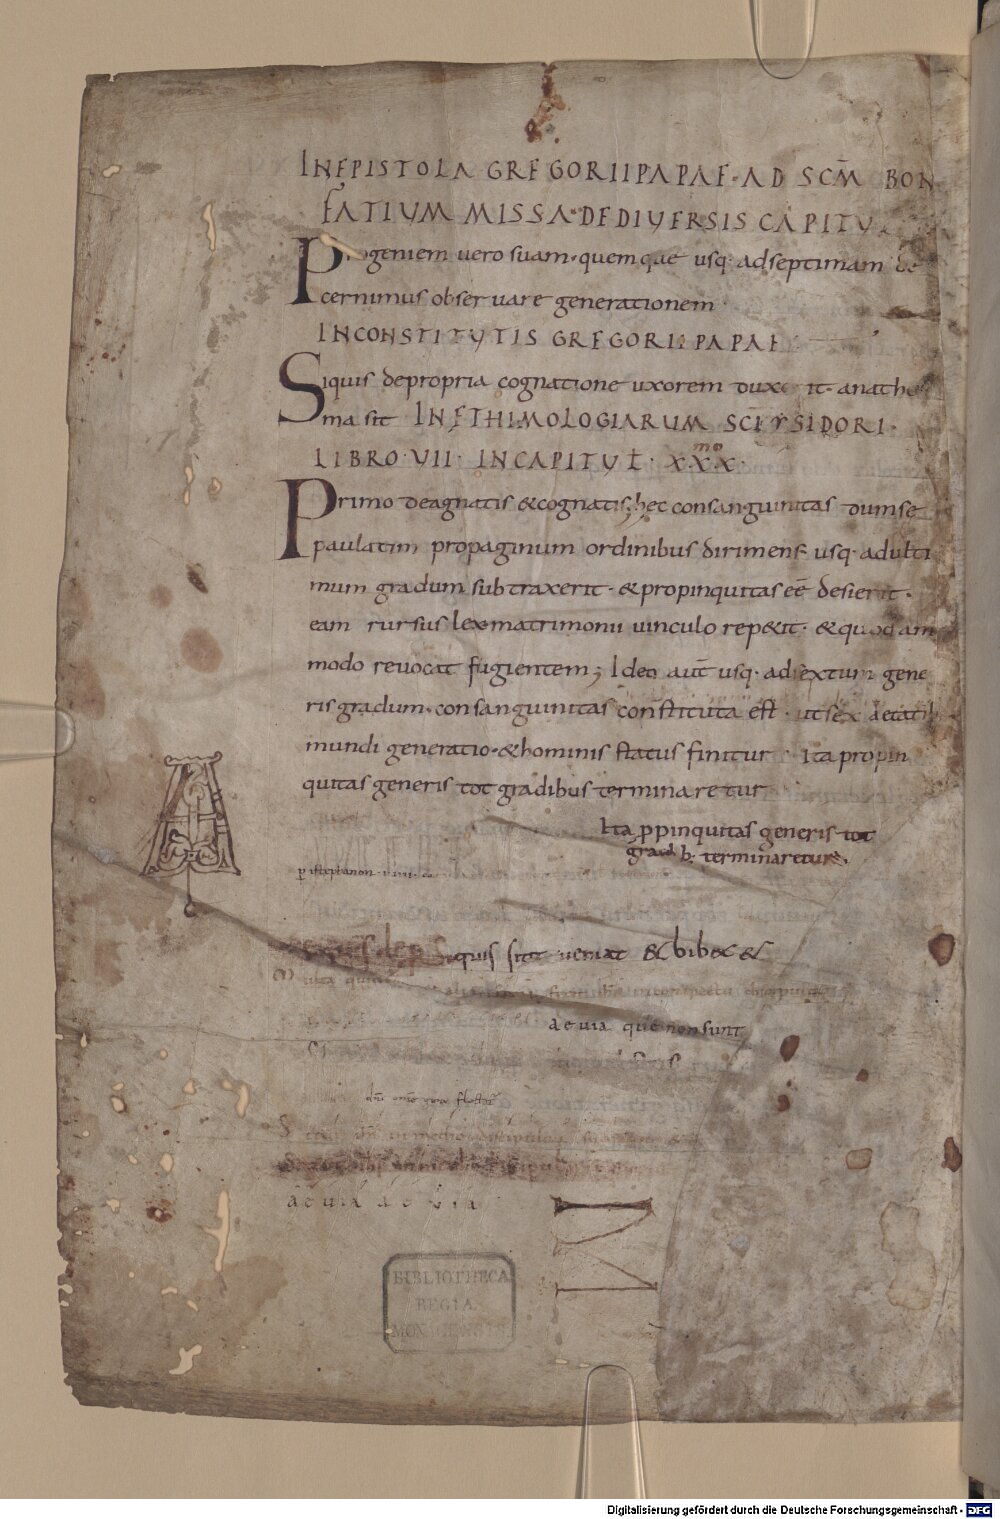 IN EPISTOLA GREGORII PAPAE · AD SCM̄ BON
FATIUM MISSA · DE DIVERSIS CAPITV
Progeniem uero suam · quemque usq · ad septimam de
cernimus obseruare generationem
IN CONSTITVTIS GREGORII PAPAE
Siquis de propria cognatione uxorem duxerit · anathe
ma sit IN ETHIMOLOGIARUM SCĪ YSIDORI ·
LIBRO · VII · IN CAPITVŁ · XXX mo
Primo de agnatis & cognatis; hec consanguinitas dum se
paulatim propaginum ordinibus dirimens usq · ad ulti
mum gradum subtraxerit · & propinquitas eē desierit ·
eam rursus lex matrimonii uinculo rep&it · & quodam
modo reuocat fugientem; Ideo aut̄ usq · ad extum gene
ris gradum · consanguinitas constituta est · ut sex aetatib
mundi generatio · & hominis status finitur · Ita propin
quitas generis tot gradibus terminaretur
Ita ppinquitas generis tot
grad b · terminaretur ·
A
p istephanon
quis sitit ueniat & bibat &
ae uia que non sunt
ae uia ae uia
N
BIBLIOTHECA
REGIA
MONACENSIS
Digitalisierung gefördert durch die Deutsche Forschungsgemeinschaft - DFG